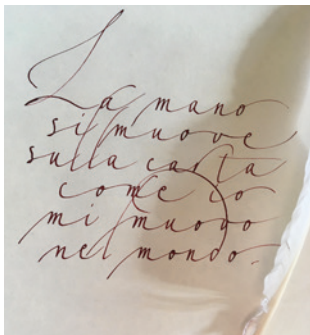 La mano
si muove
sulla carta
come io
mi muovo
nel mondo.